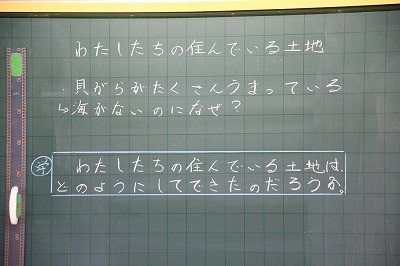 わたしたちの住んでいる土地
・貝がらがたくさんうまっている
↳海がないのになぜ?
学 わたしたちの住んでいる土地は、
どのようにしてできたのだろうか。